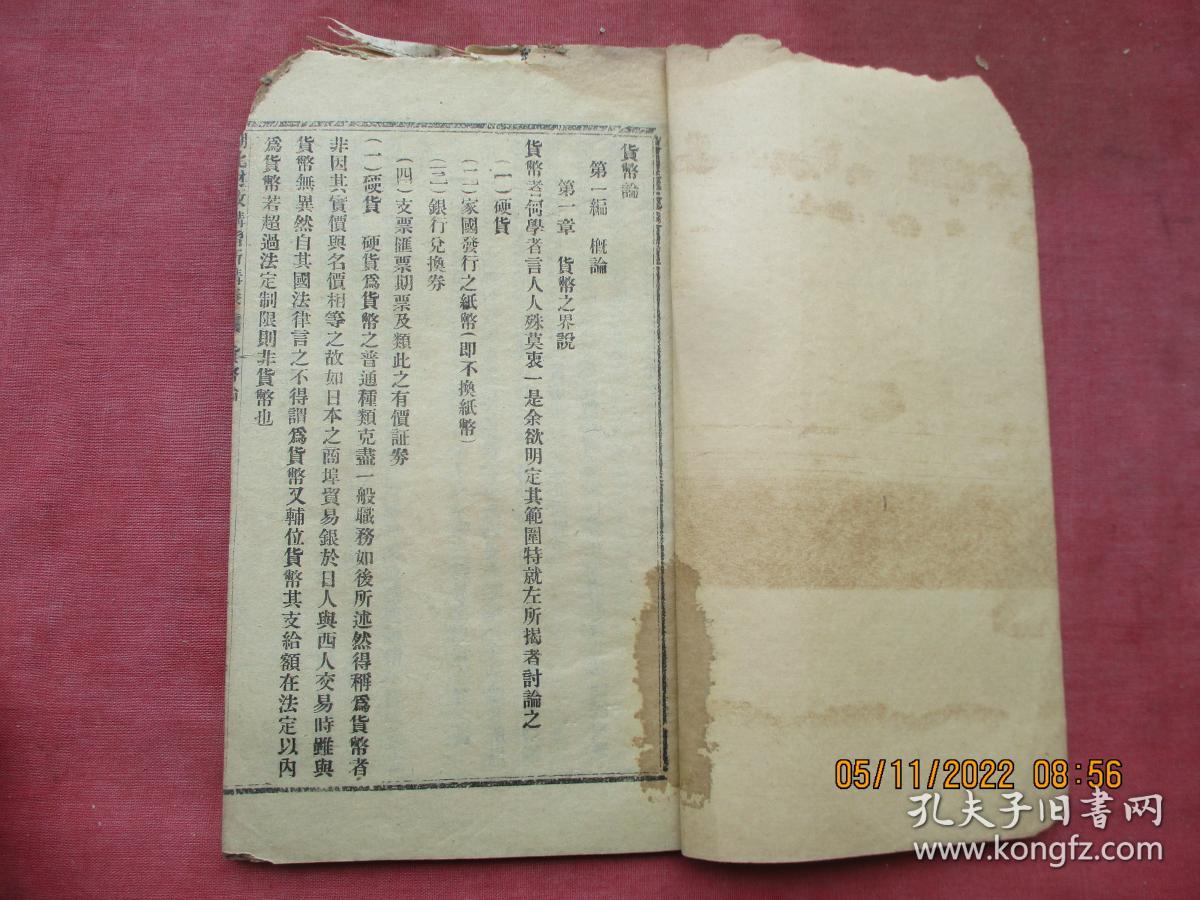 貨幣論
第一編 概論
第一章 貨幣之界說
貨幣者何學者言人人殊莫衷一是余欲明定其範圍特就左所揭者討論之
(一)硬貨
(二)家國發行之紙幣(即不換紙幣)
(三)銀行兌換券
(四)支票匯票期票及類此之有價証券
(一)硬貨 硬貨爲貨幣之普通種類克盡一般職務如後所述然得稱爲貨幣者
非因其實價與名價相等之故如日本之商埠貿易銀於日人與西人交易時雖與
貨幣無異然自其國法律言之不得謂爲貨幣又輔位貨幣其支給額在法定以內
爲貨幣若超過法定制限則非貨幣也
05/11/2022 08:56
孔夫子旧书网
www.kongfz.com